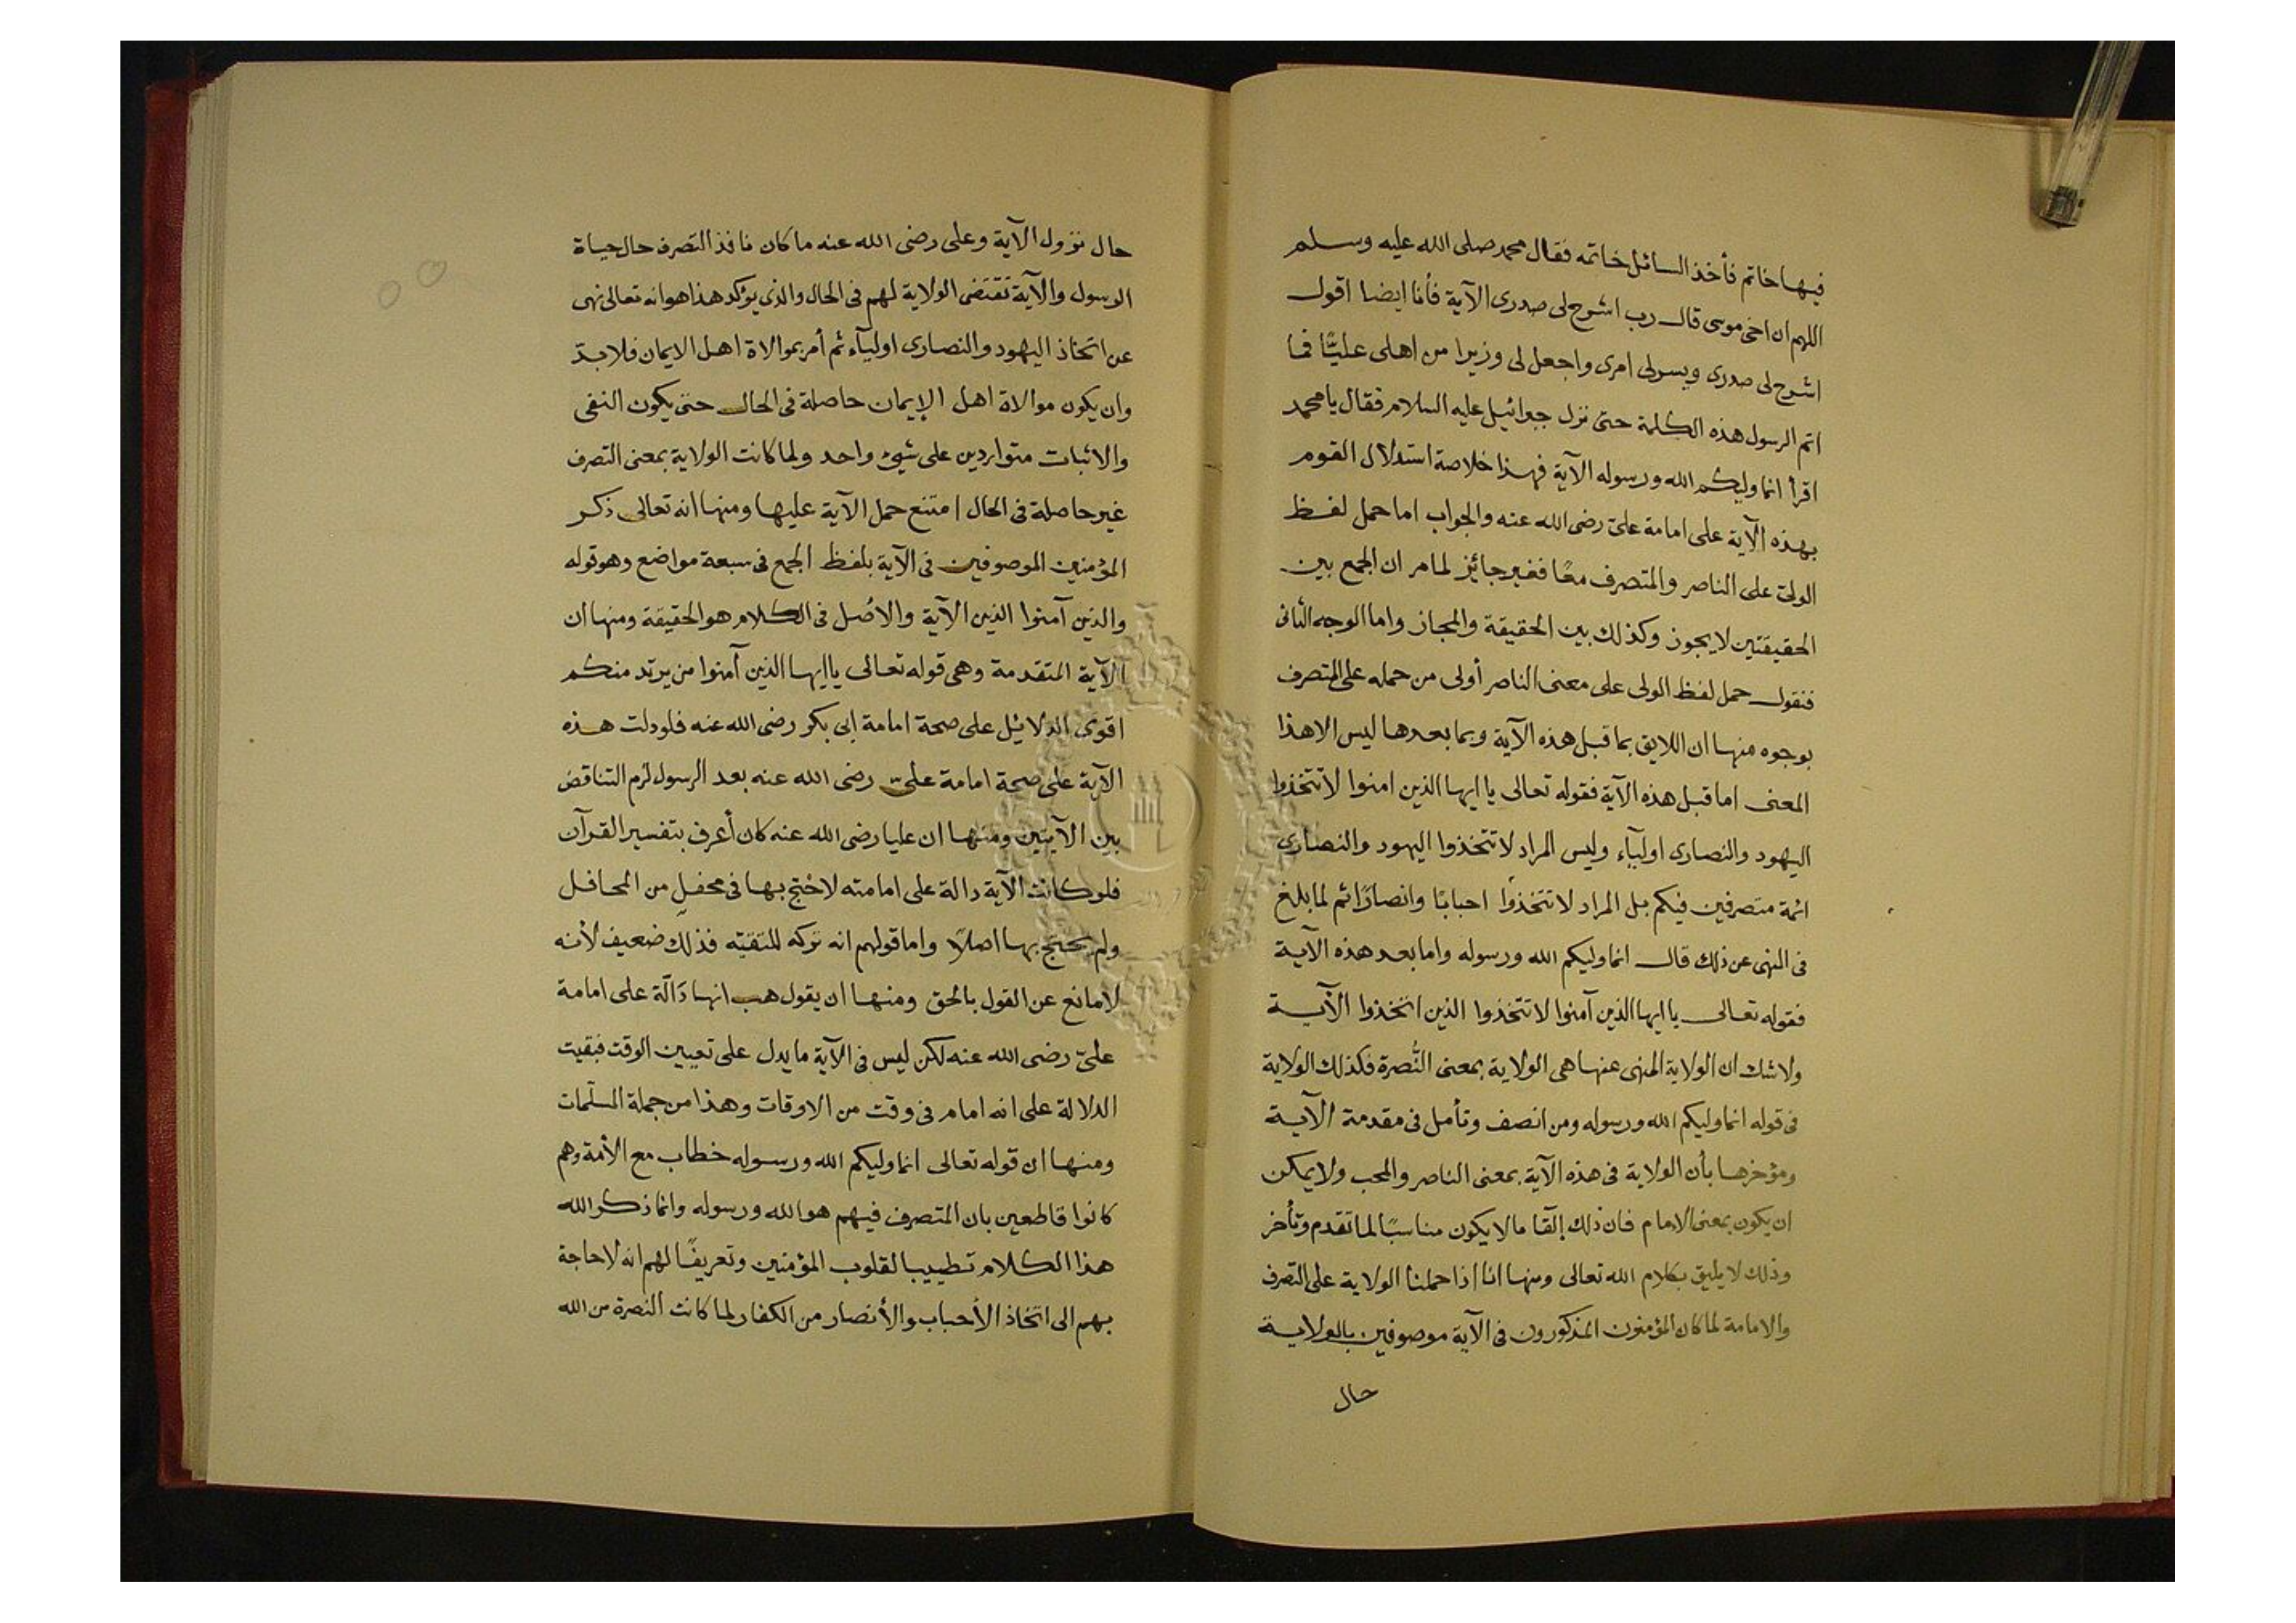 فيها خاتم فأخذ السائل خاتمه فقال محمد صلى الله عليه وسلم
اللهم ان اخى موسى قال رب اشرح لى صدرى الآية فأنا ايضا اقول
اشرح لى صدرى ويسر لى امرى واجعل لى وزيرا من اهلى عليًّا فما
اتم الرسول هذه الكلمة حتى نزل جبرائيل عليه السلام فقال يا محمد
اقرأ انما وليكم الله ورسوله الآية فهذا خلاصة استدلال القوم
بهذه الآية على امامة علىّ رضى الله عنه والجواب اما حمل لفظ
الولىّ على الناصر والمتصرف معًا فغير جائز لما مر ان الجمع بين
الحقيقتين لا يجوز وكذلك بين الحقيقة والمجاز واما الوجه الثانى
فنقول حمل لفظ الولى على معنى الناصر أولى من حمله على المتصرف
بوجوه منها ان اللايق بما قبل هذه الآية وبما بعدها ليس الا هذا
المعنى اما قبل هذه الآية فقوله تعالى يا ايها الذين امنوا لا تتخذوا
اليهود والنصارى اوليآء وليس المراد لا تتخذوا اليهود والنصارى
ائمة متصرفين فيكم بل المراد لا تتخذوا احبابًا وانصارًا ثم لما بلغ
فى النهى عن ذلك قال انما وليكم الله ورسوله واما بعد هذه الآية
فقوله تعالى يا ايها الذين آمنوا لا تتخذوا الذين اتخذوا الآية
ولا شك ان الولاية المنهى عنها هى الولاية بمعنى النُّصرة فكذلك الولاية
فى قوله انما وليكم الله ورسوله ومن انصف وتأمل فى مقدمة الآية
ومؤخرها بأن الولاية فى هذه الآية بمعنى الناصر والمحب ولا يمكن
ان يكون بمعنى الامام فان ذلك إلقا ما لا يكون مناسبًا لما تقدم وتأخر
وذلك لا يليق بكلام الله تعالى ومنها انا اذا حملنا الولاية على التصرف
والامامة لما كان المؤمنون المذكورون فى الآية موصوفين بالولاية
حال
حال نزول الآية وعلى رضى الله عنه ما كان نافذ التصرف حال حياة
الرسول والآية تقتضى الولاية لهم فى الحال والذى يؤكد هذا هو انه تعالى نهى
عن اتخاذ اليهود والنصارى اوليآء ثم أمر بموالاة اهل الايمان فلا بدّ
وان يكون موالاة اهل الإيمان حاصلة فى الحال حتى يكون النفى
والاثبات متواردين على شيئ واحد ولما كانت الولاية بمعنى التصرف
غير حاصلة فى الحال امتنع حمل الآية عليها ومنها انه تعالى ذكر
المؤمنين الموصوفين فى الآية بلفظ الجمع فى سبعة مواضع وهو قوله
والذين آمنوا الذين الآية والاصل فى الكلام هو الحقيقة ومنها ان
الآية المتقدمة وهى قوله تعالى يا ايها الذين آمنوا من يرتد منكم
اقوى الدلائيل على صحة امامة ابى بكر رضى الله عنه فلو دلت هذه
الآية على صحة امامة علىّ رضى الله عنه بعد الرسول لزم التناقض
بين الآيتين ومنها ان عليا رضى الله عنه كان أعرف بتفسير القرآن
فلو كانت الآية دالة على امامته لاحتج بها فى محفل من المحافل
ولم يحتج بها اصلًا واما قولهم انه تركه للتقيّه فذلك ضعيف لأنه
لا مانع عن القول بالحق ومنها ان يقول هب انها دَالّة على امامة
علىّ رضى الله عنه لكن ليس فى الآية ما يدل على تعيين الوقت فبقيت
الدلالة على انه امام فى وقت من الاوقات وهذا من جملة المسلّمات
ومنها ان قوله تعالى انما وليكم الله ورسوله خطاب مع الأمة وهم
كانوا قاطعين بان المتصرف فيهم هو الله ورسوله وانما ذكر الله
هذا الكلام تطييبا لقلوب المؤمنين وتعريفًا لهم انه لا حاجة
بهم الى اتخاذ الأحباب والأنصار من الكفار لما كانت النصرة من الله